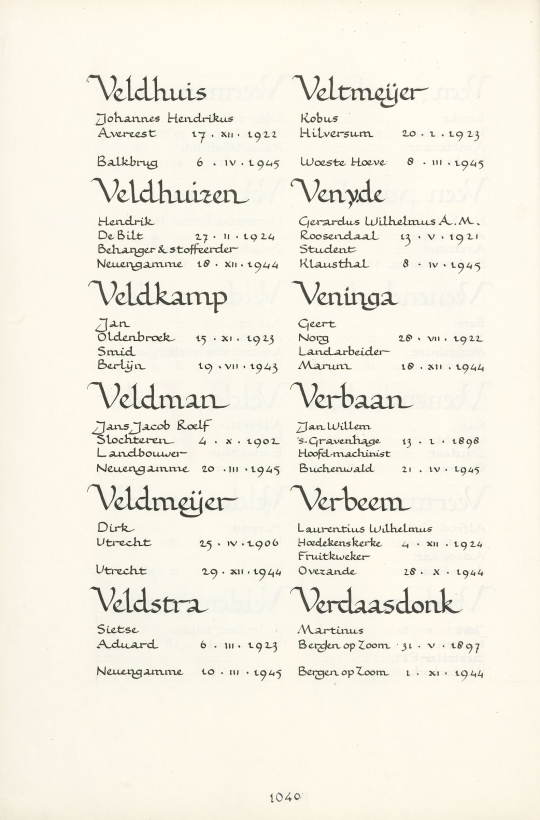 Veldhuis
Johannes Hendrikus
Avereest 17 · XII · 1922
Balkbrug 6 · IV · 1945
Veldhuizen
Hendrik
De Bilt 27 · II · 1924
Behanger & stoffeerder
Neuengamme 18 · XII · 1944
Veldkamp
Jan
Oldenbroek 15 · XI · 1923
Smid
Berlijn 19 · VII · 1943
Veldman
Jans Jacob Roelf
Slochteren 4 · X · 1902
Landbouwer
Neuengamme 20 · III · 1945
Veldmeijer
Dirk
Utrecht 25 · IV · 1906
Utrecht 29 · XII · 1944
Veldstra
Sietse
Aduard 6 · III · 1923
Neuengamme 10 · III · 1945
Veltmeijer
Kobus
Hilversum 20 · I · 1923
Woeste Hoeve 8 · III · 1945
Venyde
Gerardus Wilhelmus A.M.
Roosendaal 13 · V · 1921
Student
Klausthal 8 · IV · 1945
Veninga
Geert
Norg 28 · VII · 1922
Landarbeider
Marum 18 · XII · 1944
Verbaan
Jan Willem
's-Gravenhage 13 · I · 1898
Hoofd-machinist
Buchenwald 21 · IV · 1945
Verbeem
Laurentius Wilhelmus
Hoedekenskerke 4 · XII · 1924
Fruitkweker
Ovezande 28 · X · 1944
Verdaasdonk
Martinus
Bergen op Zoom 31 · V · 1897
Bergen op Zoom 1 · XI · 1944
1040